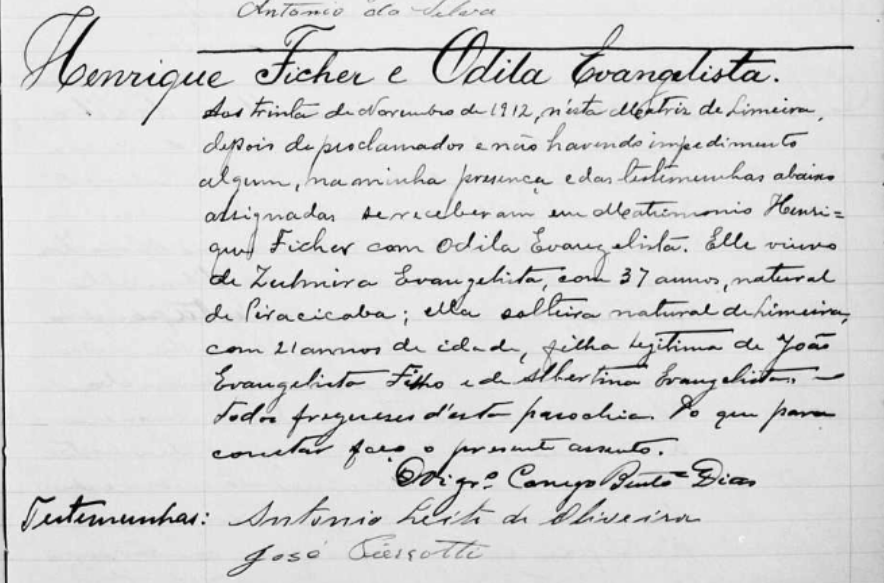 Antonio da Silva
Henrique Ficher e Odila Evangelista.
Aos trinta de Novembro de 1912, n'esta Matriz de Limeira,
depois de proclamados e não havendo impedimento
algum, na minha presença e das testemunhas abaixo
assignadas se receberam em Matrimonio Henri=
que Ficher com Odila Evangelista. Elle viuvo
de Zulmira Evangelista, com 37 annos, natural
de Piracicaba; ella solteira natural de Limeira,
com 21 annos de idade, filha legitima de João
Evangelista Filho e de Albertina Evangelista. —
Todos freguezes d'esta parochia. Do que para
constar faço o presente assento.
O Vigrº Conego Bento Dias
Testemunhas: Antonio Leite de Oliveira
José